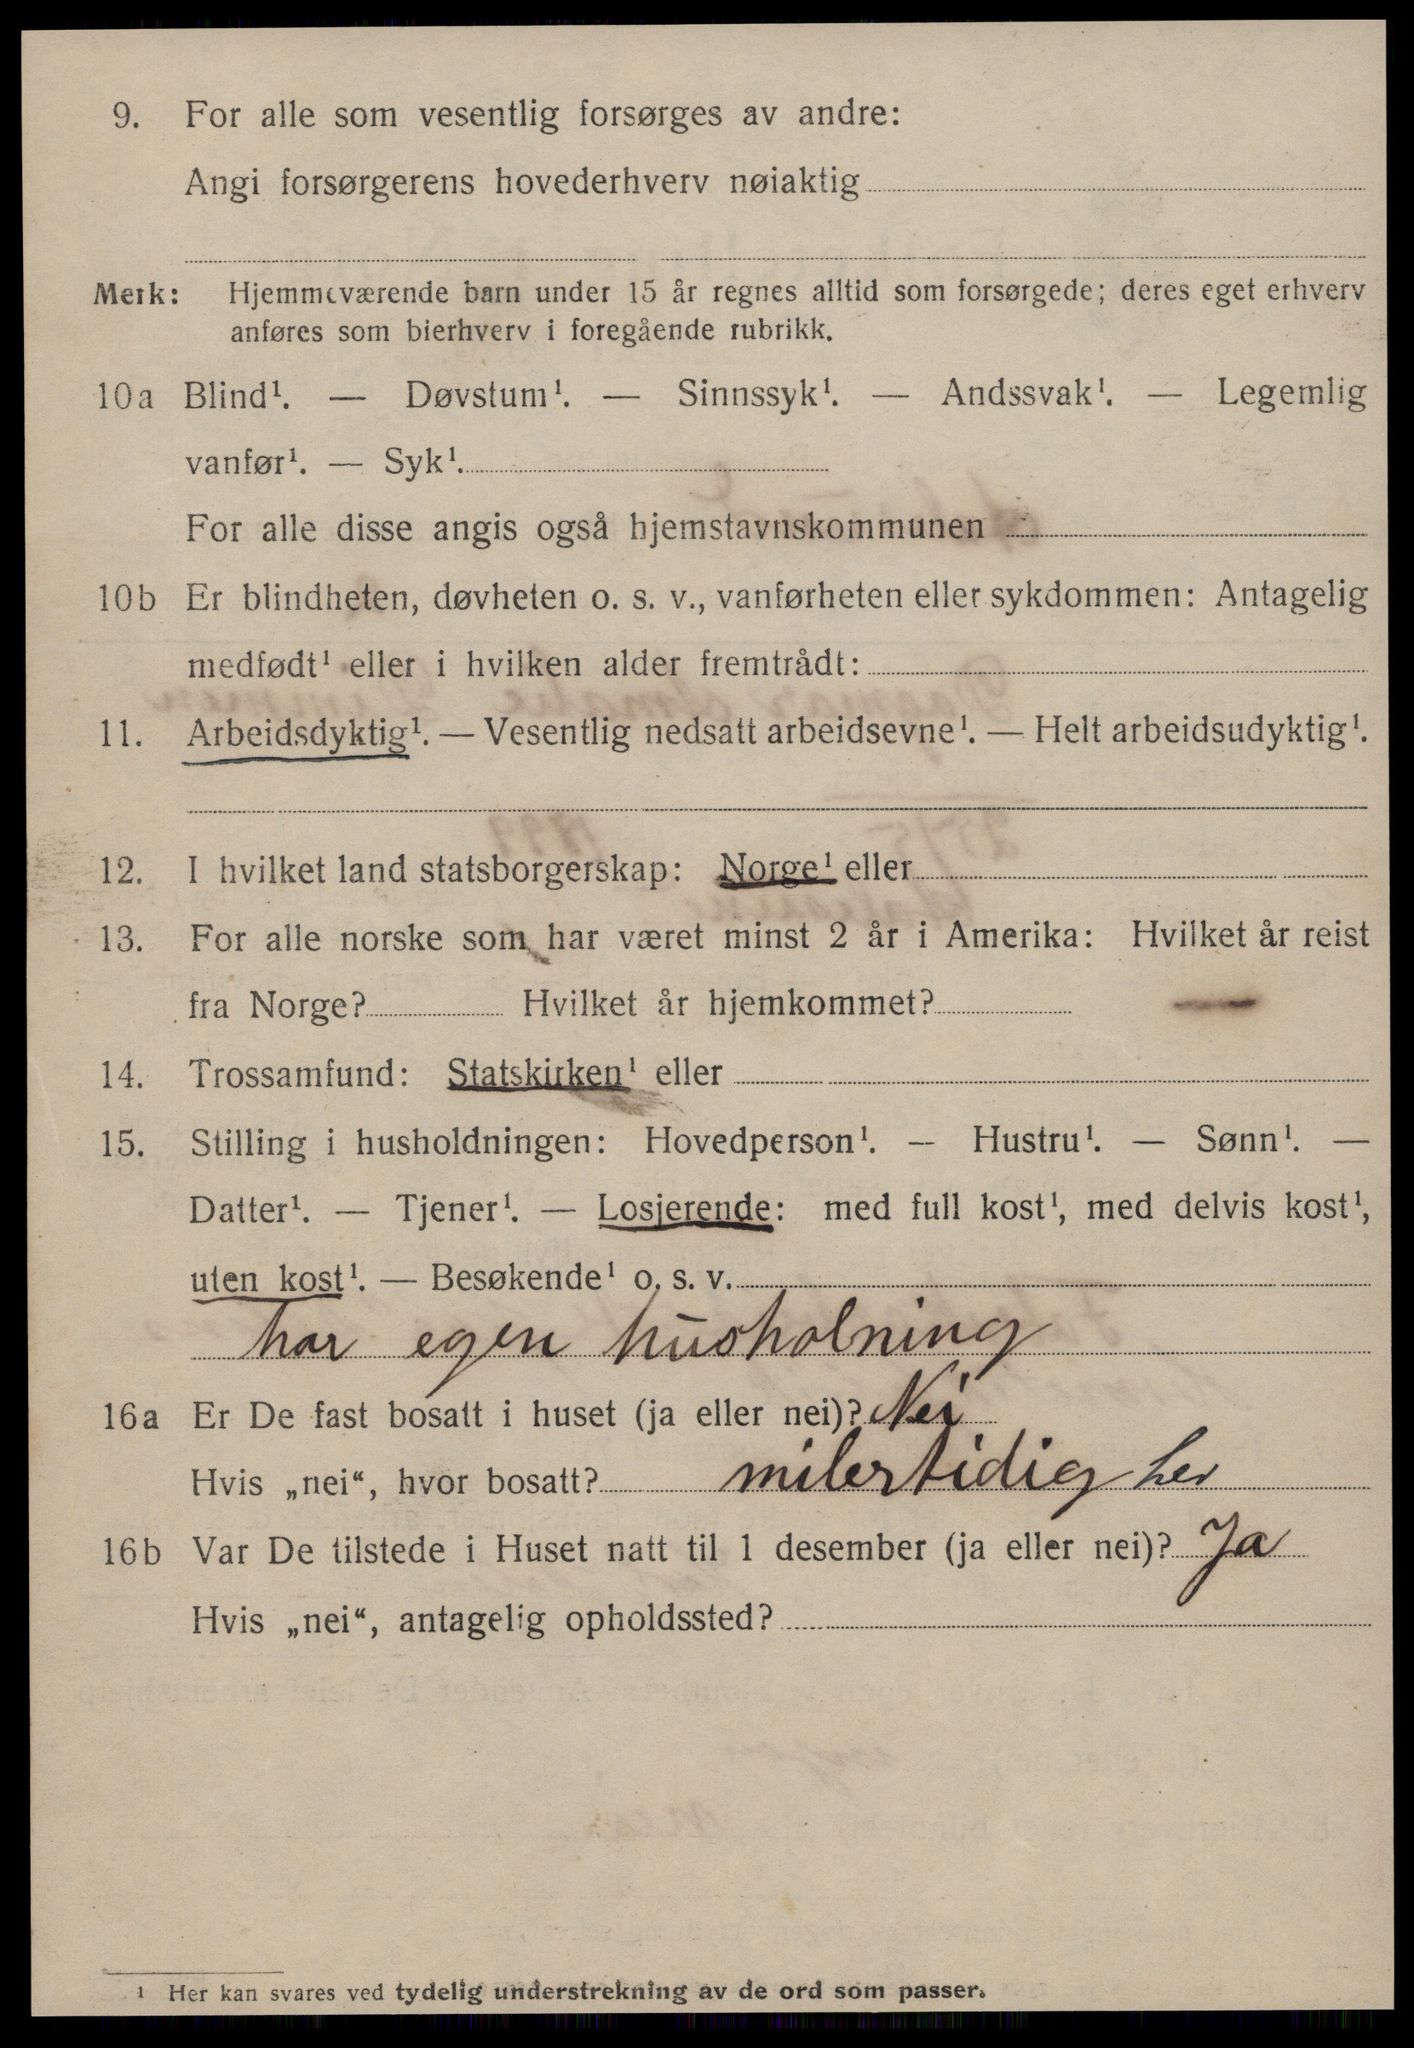 9. For alle som vesentlig forsørges av andre:
Angi forsørgerens hovederhverv nøiaktig
Merk: Hjemmeværende barn under 15 år regnes alltid som forsørgede; deres eget erhverv
anføres som bierhverv i foregående rubrikk.
10a Blind¹. — Døvstum¹. — Sinnssyk¹. — Andssvak¹. — Legemlig
vanfør¹. — Syk¹.
For alle disse angis også hjemstavnskommunen
10b Er blindheten, døvheten o. s. v., vanførheten eller sykdommen: Antagelig
medfødt¹ eller i hvilken alder fremtrådt:
11. Arbeidsdyktig¹. — Vesentlig nedsatt arbeidsevne¹. — Helt arbeidsudyktig¹.
12. I hvilket land statsborgerskap: Norge¹ eller
13. For alle norske som har været minst 2 år i Amerika: Hvilket år reist
fra Norge? Hvilket år hjemkommet? —
14. Trossamfund: Statskirken¹ eller
15. Stilling i husholdningen: Hovedperson¹. — Hustru¹. — Sønn¹. —
Datter¹. — Tjener¹. — Losjerende: med full kost¹, med delvis kost¹,
uten kost¹. — Besøkende¹ o. s. v.
har egen husholning
16a Er De fast bosatt i huset (ja eller nei)? Nei
Hvis „nei“, hvor bosatt? milertidig her
16b Var De tilstede i Huset natt til 1 desember (ja eller nei)? Ja
Hvis „nei“, antagelig opholdssted?
¹ Her kan svares ved tydelig understrekning av de ord som passer.